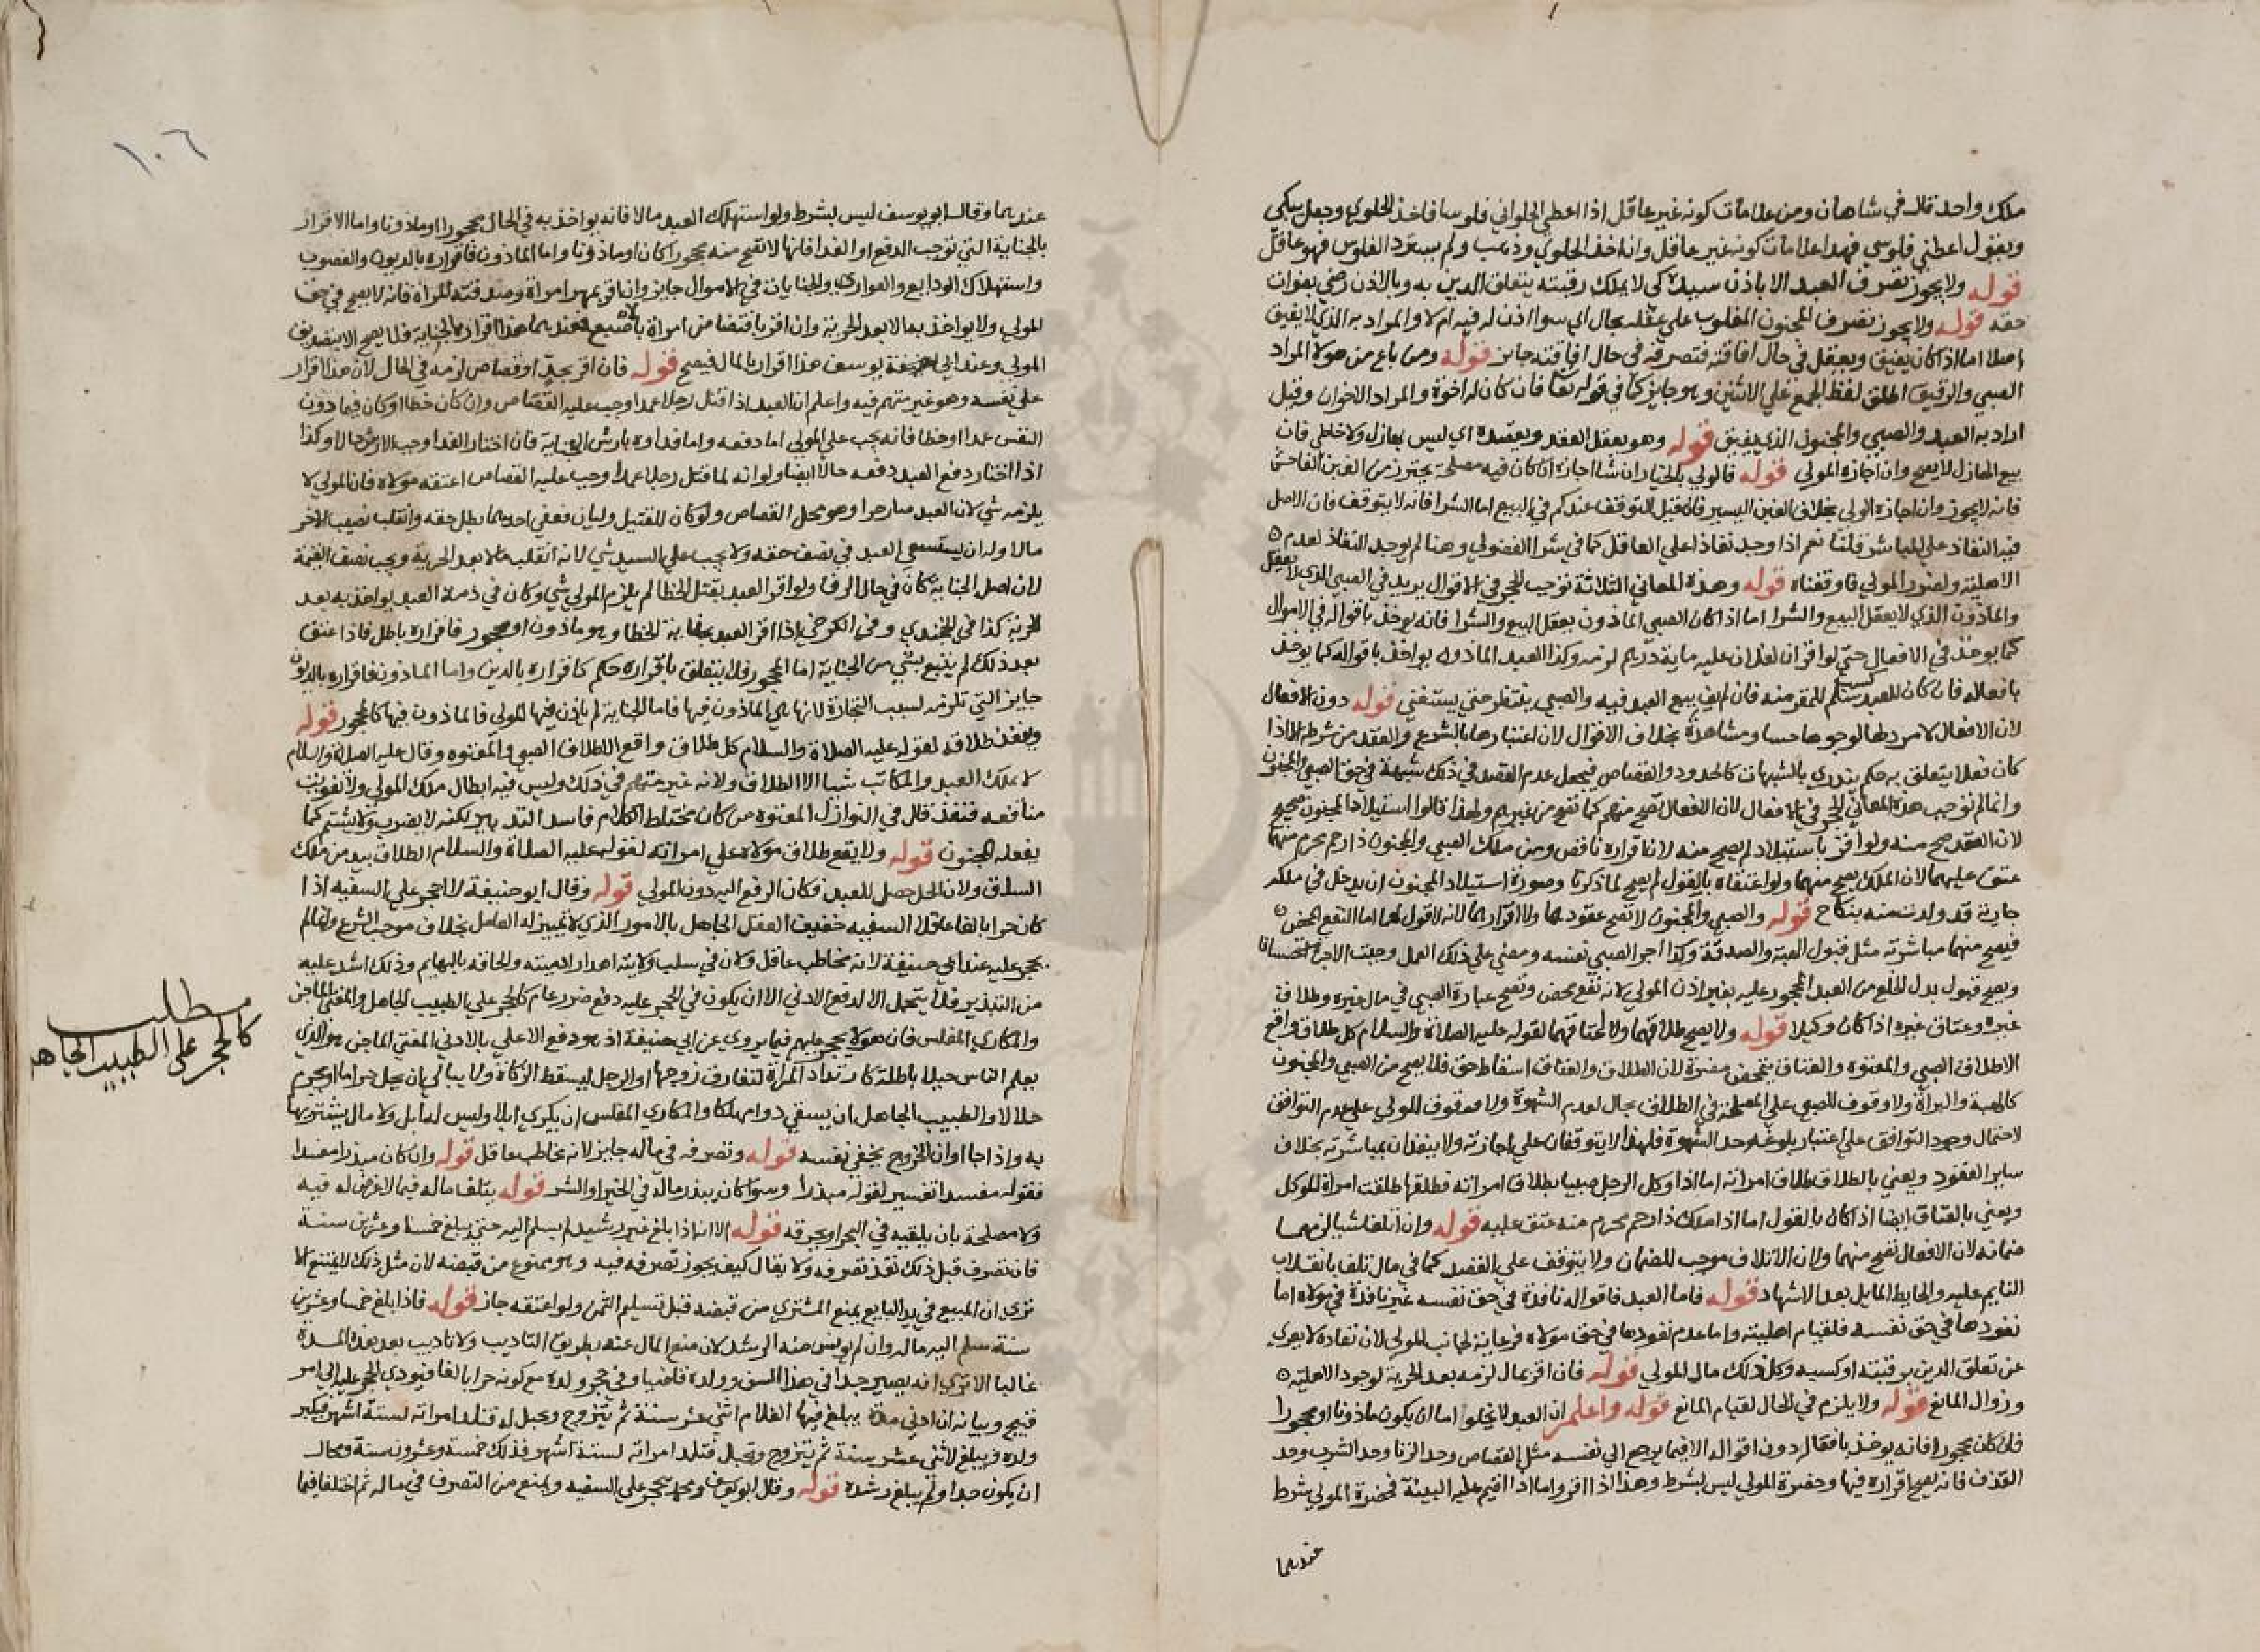 ملك واحد قال في شاهان ومن علامات كونه غير عاقل اذا اعطي الحلواني فلوسا فاخذ الحلوي وجعل يبكي
ويقول اعطني فلوسي فهذا علامات كونه غير عاقل وانه اخذ الحلوي وذهب ولم يسترد الفلوس فهو عاقل
قوله ولا يجوز تصرف العبد الا باذن سيده كي لا يملك رقبته يتعلق الدين به وبالاذن رضي بفوات
حقه قوله ولا يجوز تصرف المجنون المغلوب علي عقله بحال اي سوا اذن له فيه ام لا والمراد به الذي لا يفيق
اصلا اما اذا كان يفيق ويعقل في حال افاقته فتصرفه في حال افاقته جايز قوله ومن باع من هولا المراد
الصبي والرقيق اطلق لفظ الجمع علي الاثنين وهو جايز كما في قوله تعا فان كان له اخوة والمراد الاخوان وقيل
اراد به العبد والصبي والمجنون الذي يفيق قوله وهو يعقل العقد ويقصده اي ليس بهازل ولا خاطي فان
بيع الهازل لا يصح وان اجازه المولي قوله فالولي بالخيار ان شا اجازه ان كان فيه مصلحة يحترز من الغبن الفاحش
فانه لا يجوز وان اجازه الولي بخلاف الغبن اليسير فان قيل التوقف عندكم في البيع اما الشرا فانه لا يتوقف فان الاصل
فيه النفاذ علي المباشر قلنا نعم اذا وجد نفاذا علي العاقل كما في شرا الفضولي وهنا لم يوجد النفاذ لعدم
الاهلية ولضرر المولي فاوقفناه قوله وهذه المعاني الثلاثة توجب الحجر في الاقوال يريد في الصبي الذي لا يعقل
والماذون الذي لا يعقل البيع والشرا اما اذا كان الصبي الماذون يعقل البيع والشرا فانه يوخذ باقواله في الاموال
كما يوخذ في الافعال حتي لو اقر ان لفلان عليه ماية درهم لزمه وكذا العبد الماذون يواخذ باقواله كما يوخذ
بافعاله فان كان للعبد كسب سلم للمقر منه فان لم يف بيع العبد فيه والصبي ينتظر حتي يستغني قوله دون الافعال
لان الافعال لا مرد لها لوجودها حسا ومشاهدة بخلاف الاقوال لان اعتبارها بالشرع والقصد من شرطه الا اذا
كان فعلا يتعلق به حكم يندري بالشبهات كالحدود والقصاص فيجعل عدم القصد في ذلك شبهة في حق الصبي والمجنون
وانما لم توجب هذه المعاني الحجر في الافعال لان الافعال تصح منهم كما تصح من غيرهم ولهذا قالوا استيلاد المجنون صحيح
لان العقد صح منه ولو اقر باستيلاد لم يصح منه لان اقراره ناقص ومن ملك الصبي والمجنون ذا رحم محرم منهما
عتق عليهما لان الملك يصح منهما ولو اعتقاه بالقول لم يصح لما ذكرنا وصورة استيلاد المجنون ان يدخل في ملكه
جارية قد ولدت منه بنكاح قوله والصبي والمجنون لا تصح عقودهما ولا اقرارهما لانه لا قول لهما اما النفع المحض
فيصح منهما مباشرته مثل قبول الهبة والصدقة وكذا اجر الصبي نفسه ومضي علي ذلك العمل وجبت الاجرة استحسانا
ويصح قبول بدل الخلع من العبد المحجور عليه بغير اذن المولي لانه نفع محض وتصح عبارة الصبي في مال غيره وطلاق
غيره وعتاق غيره اذا كان وكيلا قوله ولا يصح طلاقهما ولا اعتاقهما لقوله عليه الصلاة والسلام كل طلاق واقع
الا طلاق الصبي والمعتوه والعتاق يتمحض مضرة لان الطلاق والعتاق اسقاط حق فلا يصح من الصبي والمجنون
كالهبة والبراة ولا وقوف للصبي علي المصلحة في الطلاق بحال لعدم الشهوة ولا وقوف للولي علي عدم التوافق
لاحتمال وجود التوافق علي اعتبار بلوغه حد الشهوة فلهذا لا يتوقفان علي اجازته ولا ينفذان بمباشرته بخلاف
ساير العقود ويعني بالطلاق طلاق امراته اما اذا وكل الرجل صبيا بطلاق امراته فطلقها طلقت امراة الموكل
ويعني بالعتاق ايضا اذا كان بالقول اما اذا ملك ذا رحم محرم منه عتق عليه قوله وان اتلفا شيا لزمهما
ضمانه لان الافعال تصح منهما ولان الاتلاف موجب للضمان ولا يتوقف علي القصد كما في مال تلف بانقلاب
النايم عليه والحايط المايل بعد الاشهاد قوله فاما العبد فاقواله نافذة في حق نفسه غير نافذة في مولاه اما
نفوذها في حق نفسه فلقيام اهليته واما عدم نفوذها في حق مولاه فرعاية لجانب المولي لان نفاذه لا يعري
عن تعلق الدين برقبته او كسبه وكل ذلك مال المولي قوله فان اقر بمال لزمه بعد الحرية لوجود الاهلية
وزوال المانع قوله ولا يلزم في الحال لقيام المانع قوله واعلم ان العبد لا يخلو اما ان يكون ماذونا او محجورا
فان كان محجورا فانه يوخذ بافعاله دون اقواله الا فيما يرجع الي نفسه مثل القصاص وحد الزنا وحد الشرب وحد
القذف فانه يصح اقراره فيها وحضرة المولي ليس بشرط وهذا اذا اقر واما اذا اقيم عليه البينة فحضرة المولي شرط
عندهما
١٠٦
عندهما وقال ابو يوسف ليس بشرط ولو استهلك العبد مالا فانه يواخذ به في الحال محجورا او ماذونا واما الاقرار
بالجناية التي توجب الدفع او الفدا فانها لا تصح منه محجورا كان او ماذونا واما الماذون فاقراره بالديون والغصوب
واستهلاك الودايع والعواري والجنايات في الاموال جايز وان اقر بمهر امراة وصدقته المراة فانه لا يصح في حق
المولي ولا يواخذ به الا بعد الحرية وان اقر بافتضاض امراة باصبع فعندهما هذا اقرار بالجناية فلا يصح الا بتصديق
المولي وعند ابي يوسف هذا اقرار بالمال فيصح قوله فان اقر بحد او قصاص لزمه في الحال لان هذا اقرار
علي نفسه وهو غير متهم فيه واعلم ان العبد اذا قتل رجلا عمدا وجب عليه القصاص وان كان خطا او كان فيما دون
النفس عمدا او خطا فانه يجب علي المولي اما دفعه واما فداوه بارش الجناية فان اختار الفدا وجب الارش حالا وكذا
اذا اختار دفع العبد دفعه حالا ايضا ولو انه لما قتل رجلا عمدا وجب عليه القصاص اعتقه مولاه فان المولي لا
يلزمه شي لان العبد صار حرا وهو محل القصاص ولو كان للقتيل وليان فعفي احدهما بطل حقه وانقلب نصيب الاخر
مالا وله ان يستسعي العبد في نصف حقه ولا يجب علي السيد شي لانه انقلب مالا بعد الحرية ويجب نصف القيمة
لان اصل الجناية كان في حال الرق ولو اقر العبد بقتل الخطا لم يلزم المولي شي وكان في ذمة العبد يواخذ به بعد
الحرية كذا في الخجندي وفي الكرخي اذا اقر العبد بجناية الخطا وهو ماذون او محجور فاقراره باطل فاذا عتق
بعد ذلك لم يتبع بشي من الجناية اما المحجور فلا يتعلق باقراره حكم كاقراره بالدين واما الماذون فاقراره بالديون
جايز التي تلزمه لسبب التجارة لانها هي الماذون فيها فاما الجناية لم ياذن فيها المولي فالماذون فيها كالمحجور قوله
وينفذ طلاقه لقوله عليه الصلاة والسلام كل طلاق واقع الا طلاق الصبي والمعتوه وقال عليه الصلاة والسلام
لا يملك العبد والمكاتب شيا الا الطلاق ولانه غير متهم في ذلك وليس فيه ابطال ملك المولي ولا تفويت
منافعه فنفذ قال في النوازل المعتوه من كان مختلط الكلام فاسد التدبير لكنه لا يضرب ولا يشتم كما
يفعله المجنون قوله ولا يقع طلاق مولاه علي امراته لقوله عليه الصلاة والسلام الطلاق بيد من ملك
الساق ولان الحل حصل للعبد فكان الرفع اليه دون المولي قوله وقال ابو حنيفة لا احجر علي السفيه اذا
كان حرا بالغا عاقلا السفيه خفيف العقل الجاهل بالامور الذي لا تمييز له العامل بخلاف موجب الشرع وانما لم
يحجر عليه عند ابي حنيفة لانه مخاطب عاقل ولان في سلب ولايته اهدار ادميته والحاقه بالبهايم وذلك اشد عليه
من التبذير فلا يتحمل الا لدفع الادني الا ان يكون في الحجر عليه دفع ضرر عام كالحجر علي الطبيب الجاهل والمفتي الماجن
والمكاري المفلس فان هولا يحجر عليهم فيما يروي عن ابي حنيفة اذ هو دفع الاعلي بالادني المفتي الماجن هو الذي
يعلم الناس حيلا باطلة كارتداد المراة لتفارق زوجها او الرجل ليسقط الزكاة ولا يبالي بان يحل حراما او يحرم
حلالا والطبيب الجاهل ان يسقي دوا مهلكا والمكاري المفلس ان يكري ابلا وليس له ابل ولا مال يشتريها
به واذا جا اوان الخروج يخفي نفسه قوله وتصرفه في ماله جايز لانه مخاطب عاقل قوله وان كان مبذرا مفسدا
فقوله مفسدا تفسير لقوله مبذرا وسوا كان يبذر ماله في الخير او الشر قوله يتلف ماله فيما لا غرض له فيه
ولا مصلحة بان يلقيه في البحر او يحرقه قوله الا انه اذا بلغ غير رشيد لم يسلم اليه حتي يبلغ خمسا وعشرين سنة
فان تصرف قبل ذلك نفذ تصرفه ولا يقال كيف يجوز تصرفه فيه وهو ممنوع من قبضه لان مثل ذلك لا يمتنع الا
تري ان المبيع في يد البايع يمنع المشتري من قبضه قبل تسليم الثمن ولو اعتقه جاز قوله فاذا بلغ خمسا وعشرين
سنة سلم اليه ماله وان لم يونس منه الرشد لان منع المال عنه بطريق التاديب ولا تاديب بعد هذه المدة
غالبا الا تري انه يصير جدا في هذا السن وولده قاضيا وفي حجره ولده مع كونه حرا بالغا فيودي الحجر عليه الي امر
قبيح وبيانه ان ادني مدة يبلغ فيها الغلام اثني عشر سنة ثم يتزوج ويحبل له فتلد امراته لستة اشهر فيكبر
ولده ويبلغ لاثني عشر سنة ثم يتزوج وتحبل فتلد امراته لستة اشهر فذلك خمسة وعشرون سنة ومحال
ان يكون جدا ولم يبلغ رشده قوله وقال ابو يوسف ومحمد يحجر علي السفيه ويمنع من التصرف في ماله ثم اختلفا فيما
مطلب
كالحجر على الطبيب الجاهل